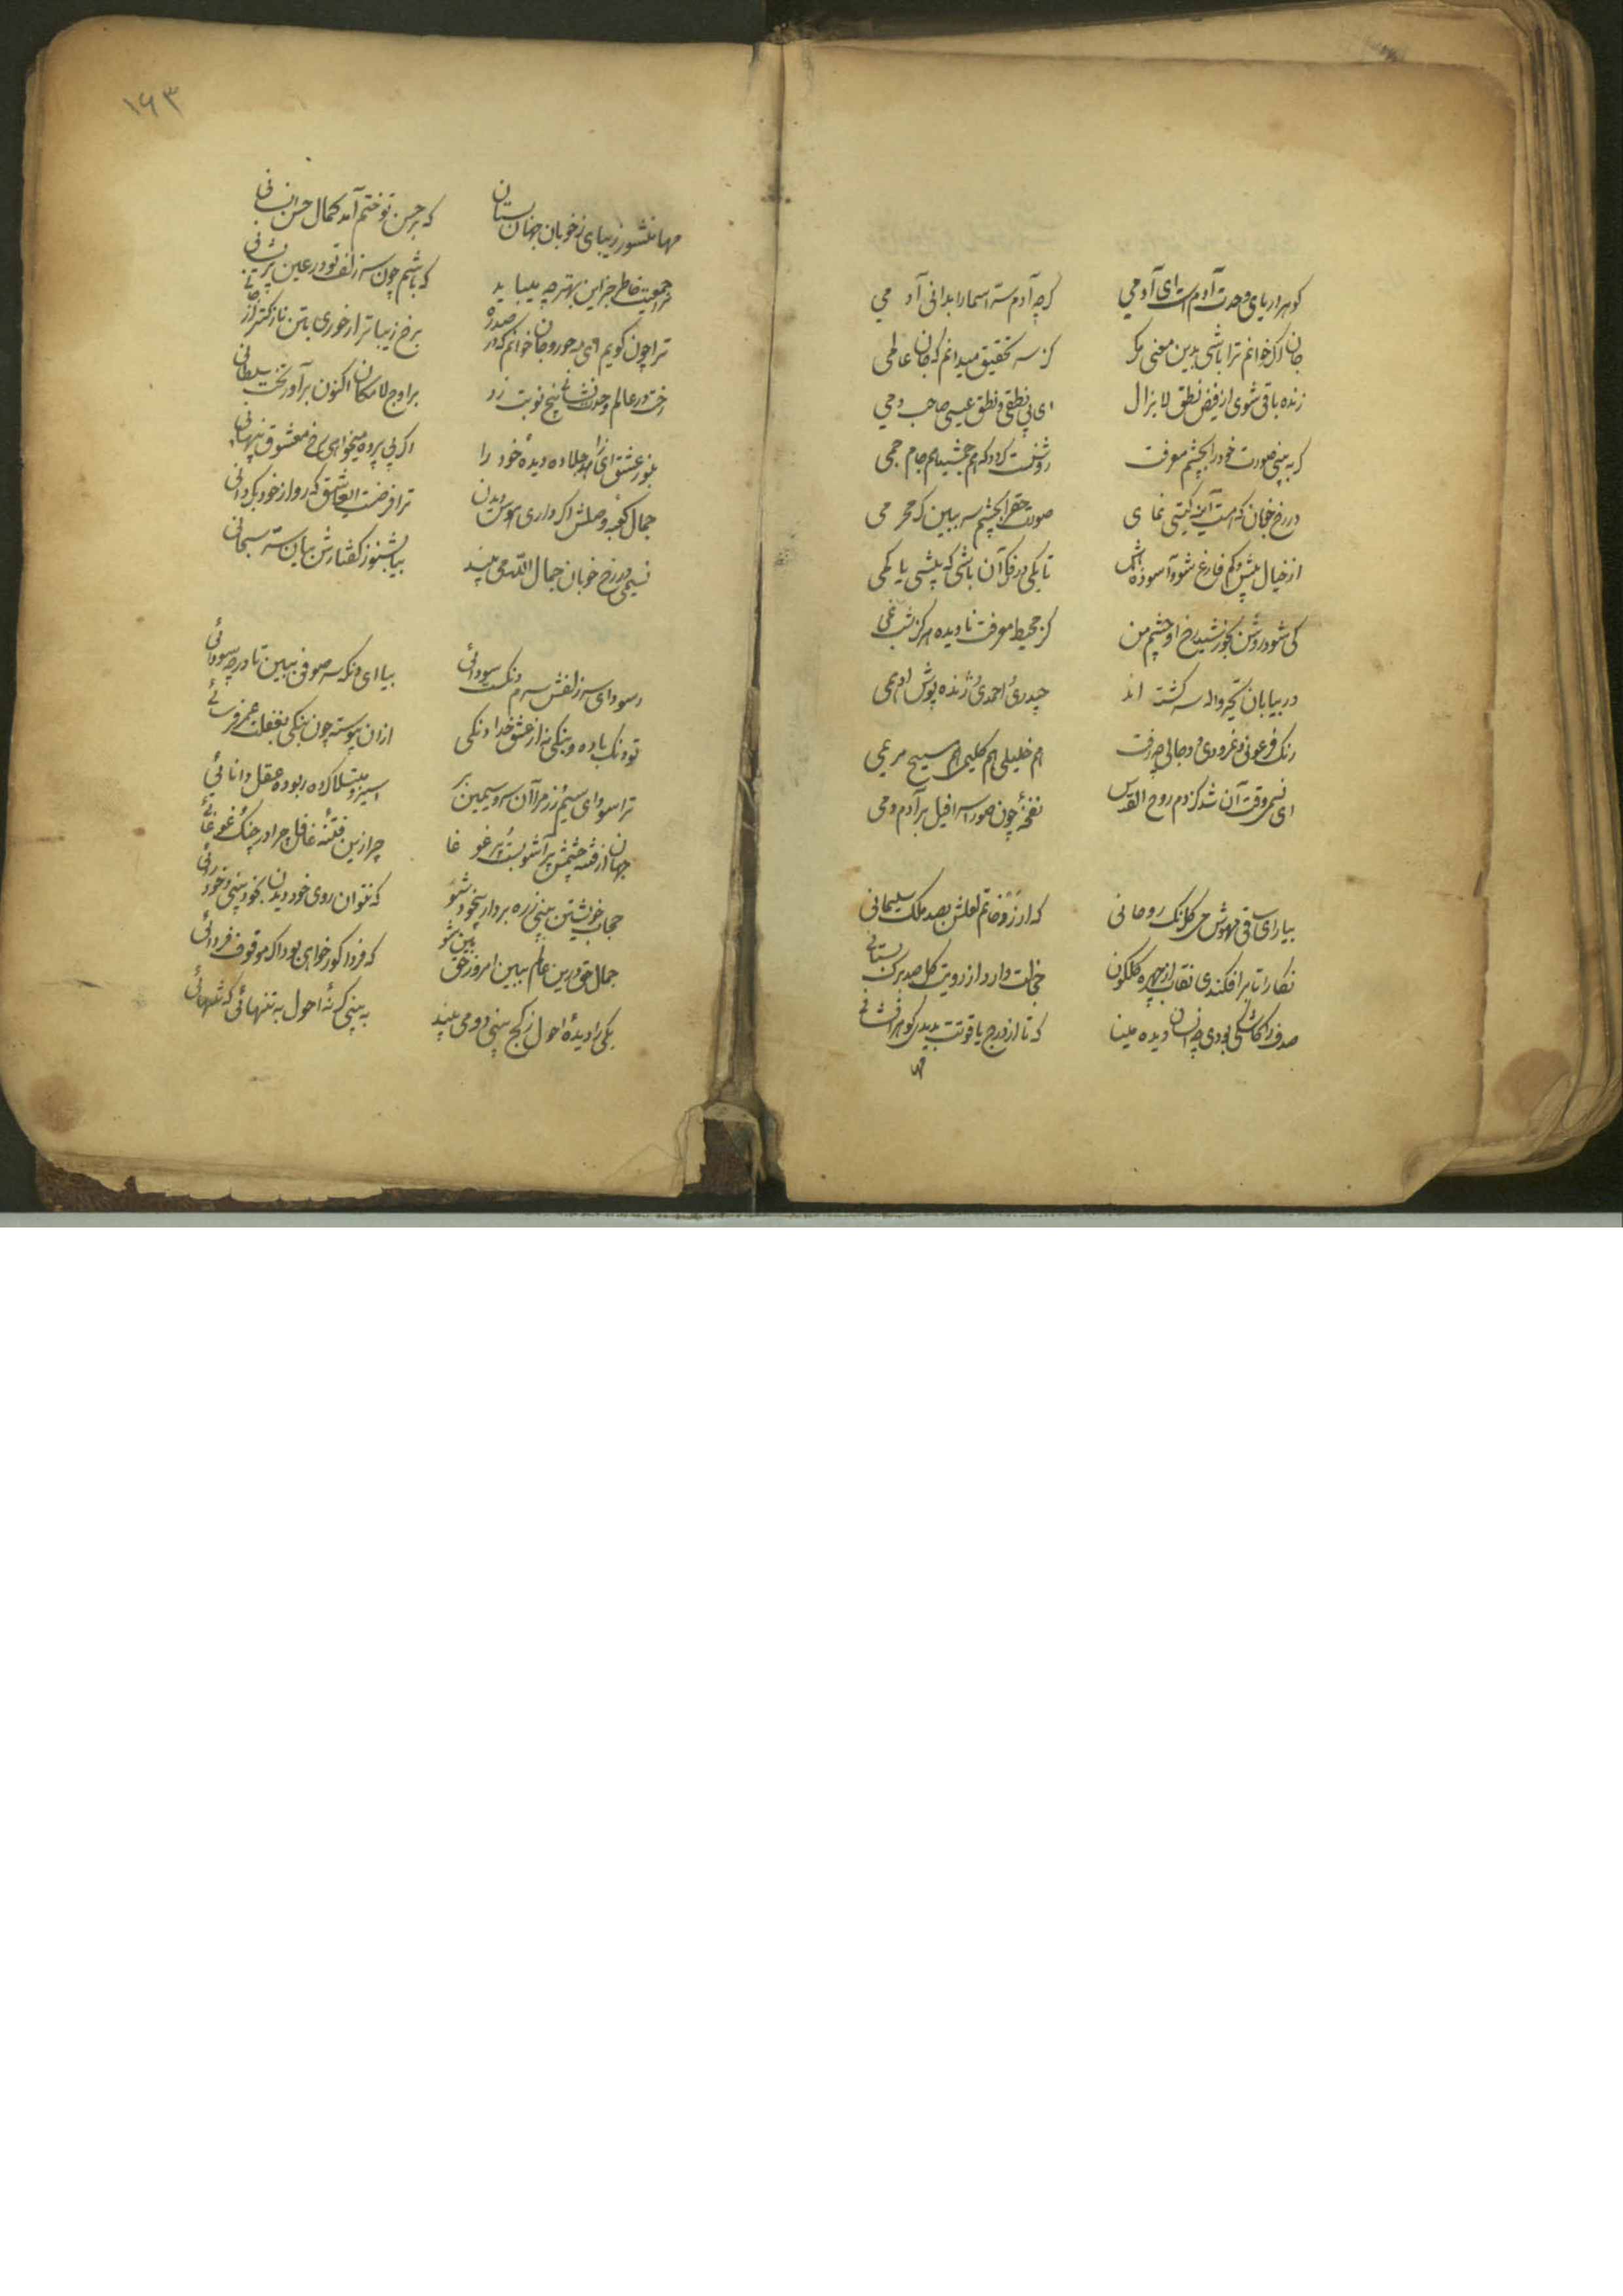 گوهر دریای وحدت آدم است ای آدمی گرچه آدم سر اسما را بدانی آدمی
جان اگر خوانم ترا باشی بدین معنی مگر کز سر تحقیق میدانم که جان عالمی
زنده باقی شوی از فیض نطق لایزال ای پی نطقی و نطق عیسی صاحب دمی
گر به بینی صورت خود را بچشم معرفت روشنت گردد که هم جمشید و هم جام جمی
در رخ خوبان که هست آیینه گیتی نمای صورت حق را بچشم سر ببین گر محرمی
از خیال بیش و کم فارغ شو و آسوده باش تا بکی در فکر آن باشی که بیشی یا کمی
کی شود روشن بخورشید رخ او چشم من کز محیط معرفت نادیده هرگز شبنمی
در بیابان تحیر واله سرگشته اند حیدری احمدی ژنده پوش ادهمی
رنگ فرعونی و نمرودی و دجالی چو رفت هم خلیلی هم کلیمی هم مسیح مریمی
ای نسیمی وقت آن شد کز دم روح القدس نفخهٔ چون صور اسرافیل بر آدم دمی
بیار ای ساقی مهوش می گلرنگ روحانی که ارزد خاتم لعلش بصد ملک سلیمانی
نگارا تا برافکندی نقاب از چهره گلگون خجالت دارد از رویت گل صد برگ بستانی
صدف را کاشکی بودی چو انسان دیده بینا که تا از درج یاقوتت بدیدی گوهر افشانی
مها
۱۶۳
مها منشور زیبای ز خوبان جهان بستان که بر حسن تو ختم آمد کمال حسن انسانی
مرا جمعیت خاطر جز این بهتر چه میباید که باشم چون سر زلف تو در عین پریشانی
ترا چون گویم ای مه حور و جان خوانم که از صد ره برخ زیباتر از حوری بتن نازکتر از جانی
رخت در عالم وحدت نشانی پنج نوبت زد بر اوج لامکان اکنون برآور تخت سلطانی
بنور عشق ای زاهد جلا ده دیدهٔ خود را اگر بی پرده میخواهی رخ معشوق پنهانی
جمال کعبه وصلش اگر داری هوس دیدن ترا فرضست ای عاشق که رو از خود بگردانی
نسیمی در رخ خوبان جمال الله می بیند بیا بشنو ز گفتارش بیان سر سبحانی
ز سودای سر زلفش سرم دنگست سودائی بیا ای دنگ سر صوفی ببین تا در چه سودائی
تو دنگ باده و بنگی نه از عشق خدا دنگی از آن پیوسته چون بنگی بغفلت عمر فرسائی
ترا سودای سیم و زر مرا آن سرو سیمین بر اسیر و مبتلا کرده ربوده عقل و دانائی
جهان از فتنه چشمش پر آشوبست و پر غوغا چرا زین فتنهٔ غافل چرا در چنگ غوغائی
حجاب خویشتن بینی ز ره بردار و بیخود شو که نتوان روی خود دیدن بخود بینی و خود رائی
جمال حق درین عالم ببین امروز حق بین شو که فردا کور خواهی بود اگر موقوف فردائی
یکی را دیدهٔ احول ز کج بینی دو می بیند به بینی گر نهٔ احول به تنهائی که تنهائی